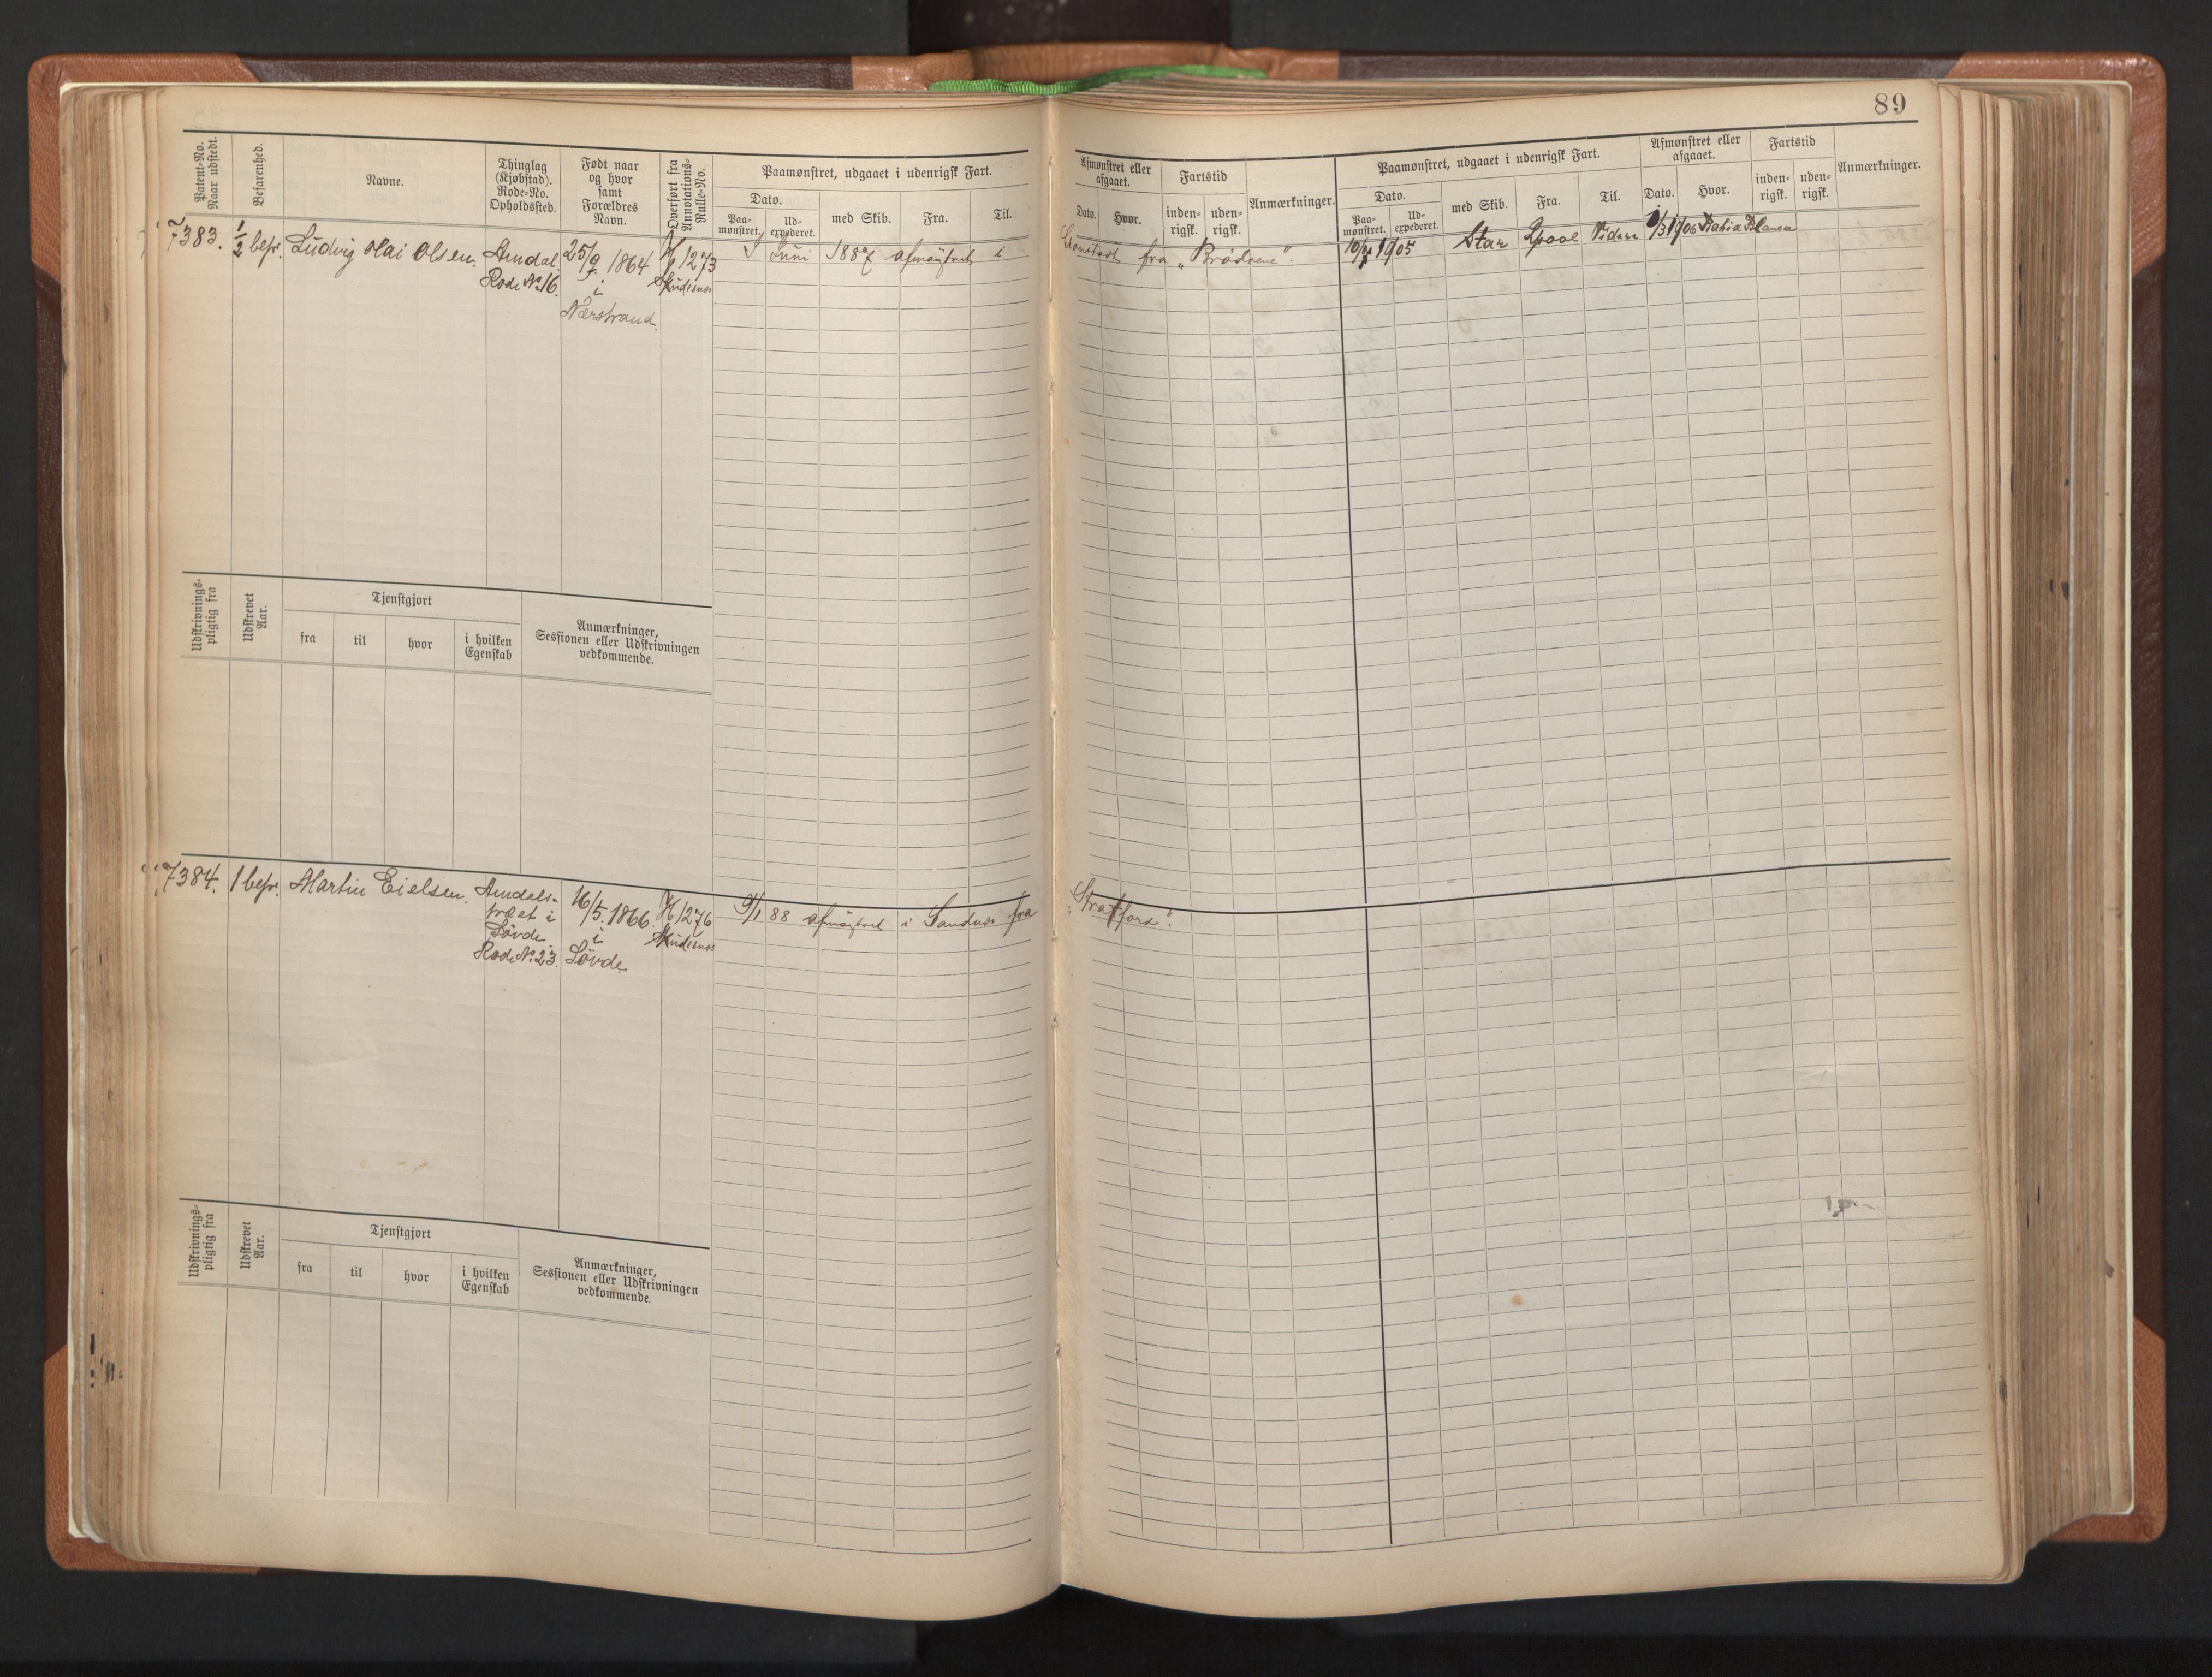 89
Patent-No. Naar udstedt.
Befarenhed.
Navne.
Thinglag (Kjøbstad). Rode-No. Opholdssted.
Født naar og hvor samt Forældres Navn.
Overført fra Annotations-Rulle-No.
Paamønstret, udgaaet i udenrigsk Fart.
Dato.
Paa-mønstret.
Ud-expederet.
med Skib.
Fra.
Til.
Afmønstret eller afgaaet.
Dato.
Hvor.
Fartstid
inden-rigsk.
uden-rigsk.
Anmærkninger.
Paamønstret, udgaaet i udenrigsk Fart.
Dato.
Paa-mønstret.
Ud-expederet.
med Skib.
Fra.
Til.
Afmønstret eller afgaaet.
Dato.
Hvor.
Fartstid
inden-rigsk.
uden-rigsk.
Anmærkninger.
7383. 1/2 befr. Ludvig Olai Olsen. Amdal. 25/9 1864 1273
Rode No 16. i Skudesnes
Nærstrand.
I Juni 1887 afmøstret i Cronstadt fra „Brødrene".
1905 Star Lpool 1906 Bahia Blanca
Udskrivnings-pligtig fra
Udskrevet Aar.
Tjenstgjort
fra
til
hvor
i hvilken Egenskab
Anmærkninger, Sessionen eller Udskrivningen vedkommende.
7384. 1 befr. Martin Eielsen. Amdals- 16/5. 1866. 1276
træet i i Skudesnes
Søvde Søvde
Rode No 23.
9/1 88 afmøstret i Sandnes fra „Stratford".
Udskrivnings-pligtig fra
Udskrevet Aar.
Tjenstgjort
fra
til
hvor
i hvilken Egenskab
Anmærkninger, Sessionen eller Udskrivningen vedkommende.